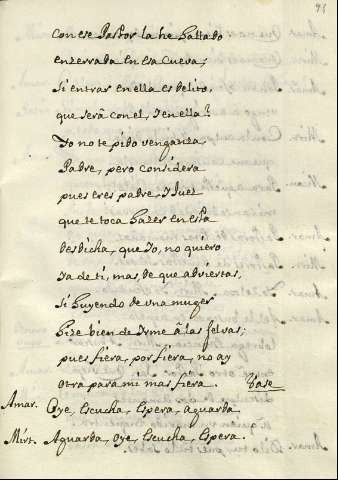 con ese Pastor la he hallado
enzerrada en esa cueva;
si entrar en ella es delito,
que serâ con el, y en ella?
Yo no te pido venganza,
Padre, pero considera
pues eres padre, y Juez
que te toca hazer en esta
desdicha, que Yo, no quiero
ya de ti, mas, de que adviertas,
si huyendo de vna muger
hize bien de irme â las selvas;
pues fiera, por fiera, no ay
otra para mi mas fiera. Vase
Amar. Oye, escucha, espera, aguarda.
Mirt. Aguarda, oye, escucha, espera.